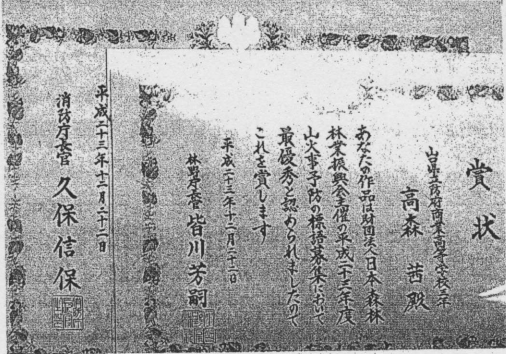 賞状
山口県立防府商業高等学校三年
高森 茜 殿
あなたの作品は財団法人日本森林
林業振興会主催の平成二十三年度
山火事予防の標語募集において
最優秀と認められましたので
これを賞します
平成二十三年十二月二十二日
林野庁長官 皆川芳嗣
平成二十三年十二月二十二日
消防庁長官 久保信保